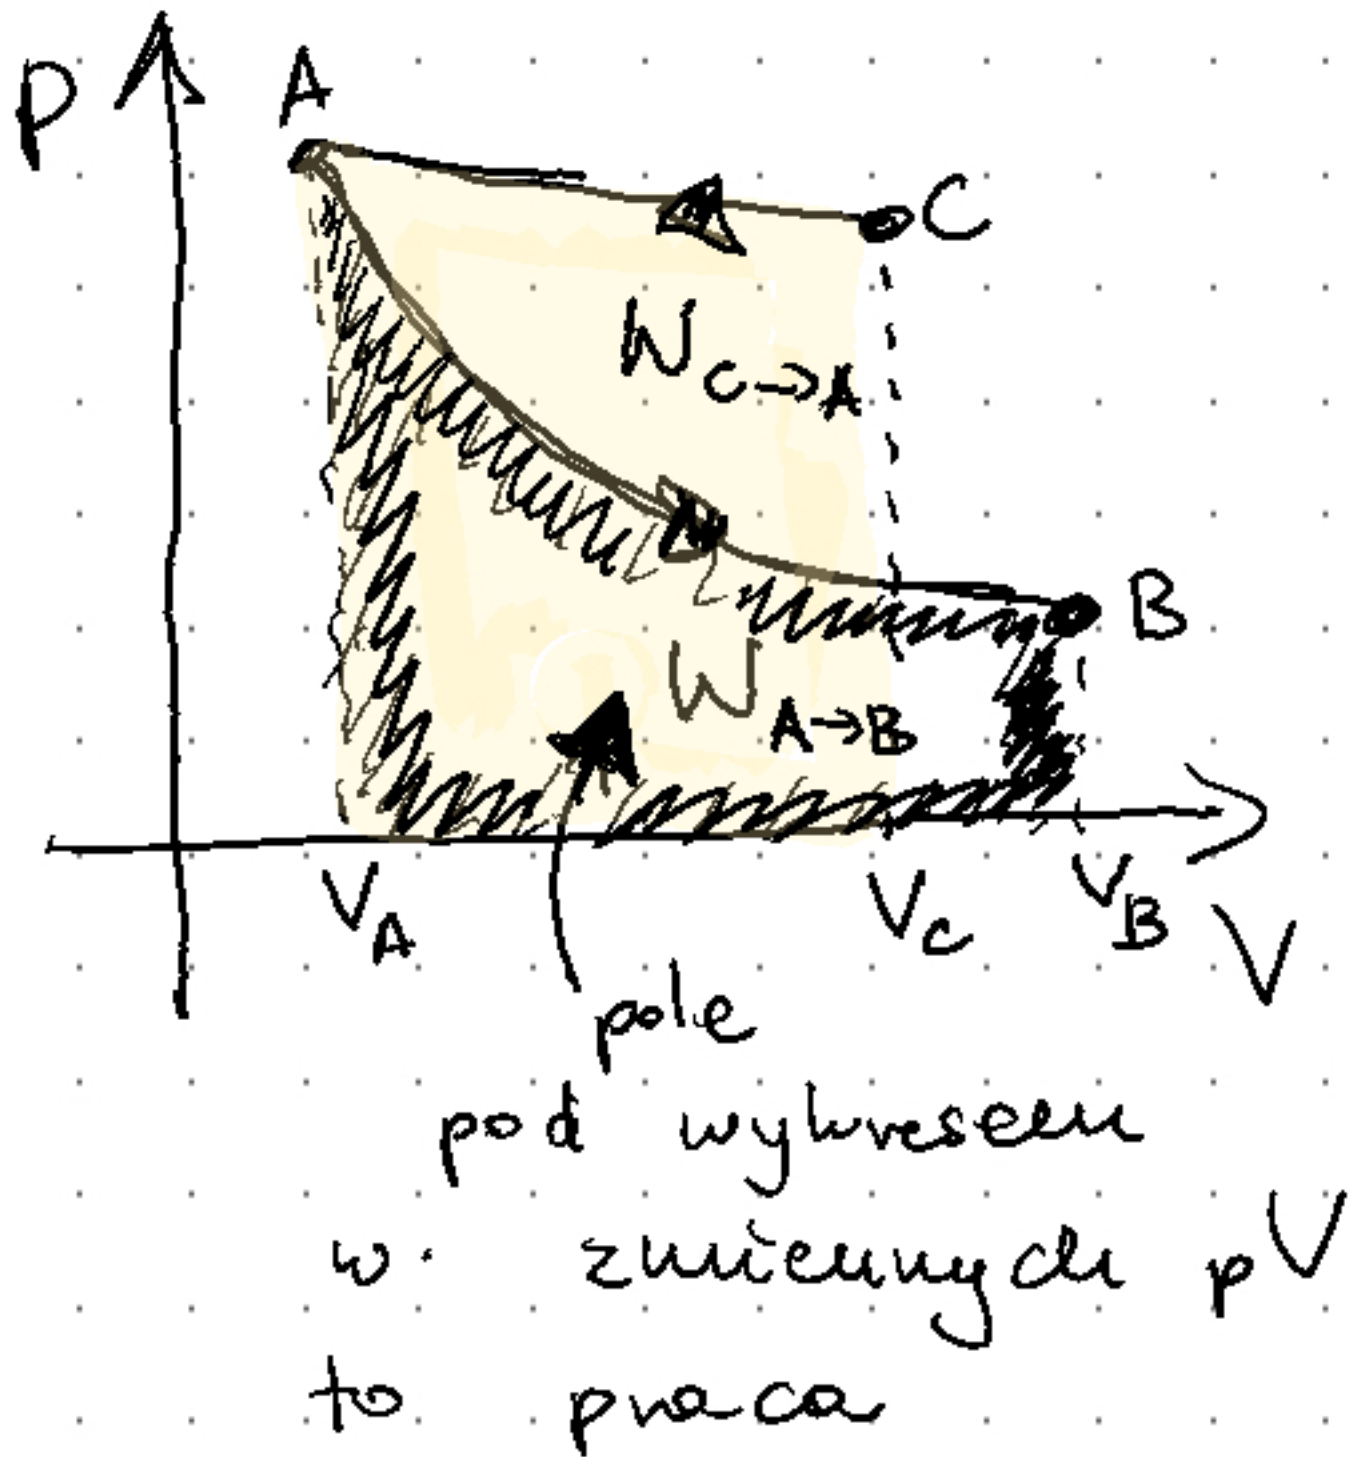 P
A
C
W C→A
B
W A→B
V_A
V_C
V_B
V
pole
pod wykresem
w. zmiennych pV
to praca